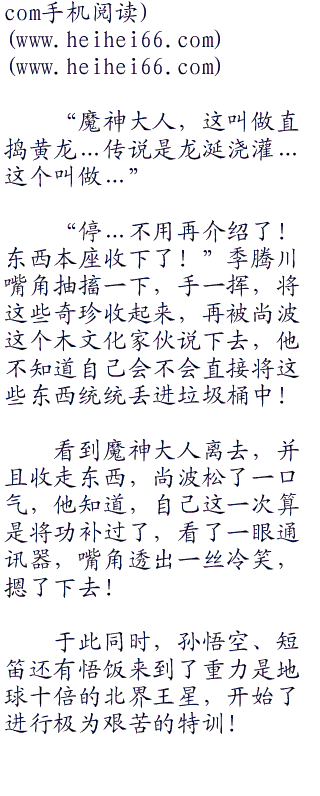 com手机阅读)
(www.heihei66.com)
(www.heihei66.com)
“魔神大人，这叫做直
捣黄龙…传说是龙涎浇灌…
这个叫做…”
“停…不用再介绍了！
东西本座收下了！”季腾川
嘴角抽搐一下，手一挥，将
这些奇珍收起来，再被尚波
这个木文化家伙说下去，他
不知道自己会不会直接将这
些东西统统丢进垃圾桶中！
看到魔神大人离去，并
且收走东西，尚波松了一口
气，他知道，自己这一次算
是将功补过了，看了一眼通
讯器，嘴角透出一丝冷笑，
摁了下去！
于此同时，孙悟空、短
笛还有悟饭来到了重力是地
球十倍的北界王星，开始了
进行极为艰苦的特训！